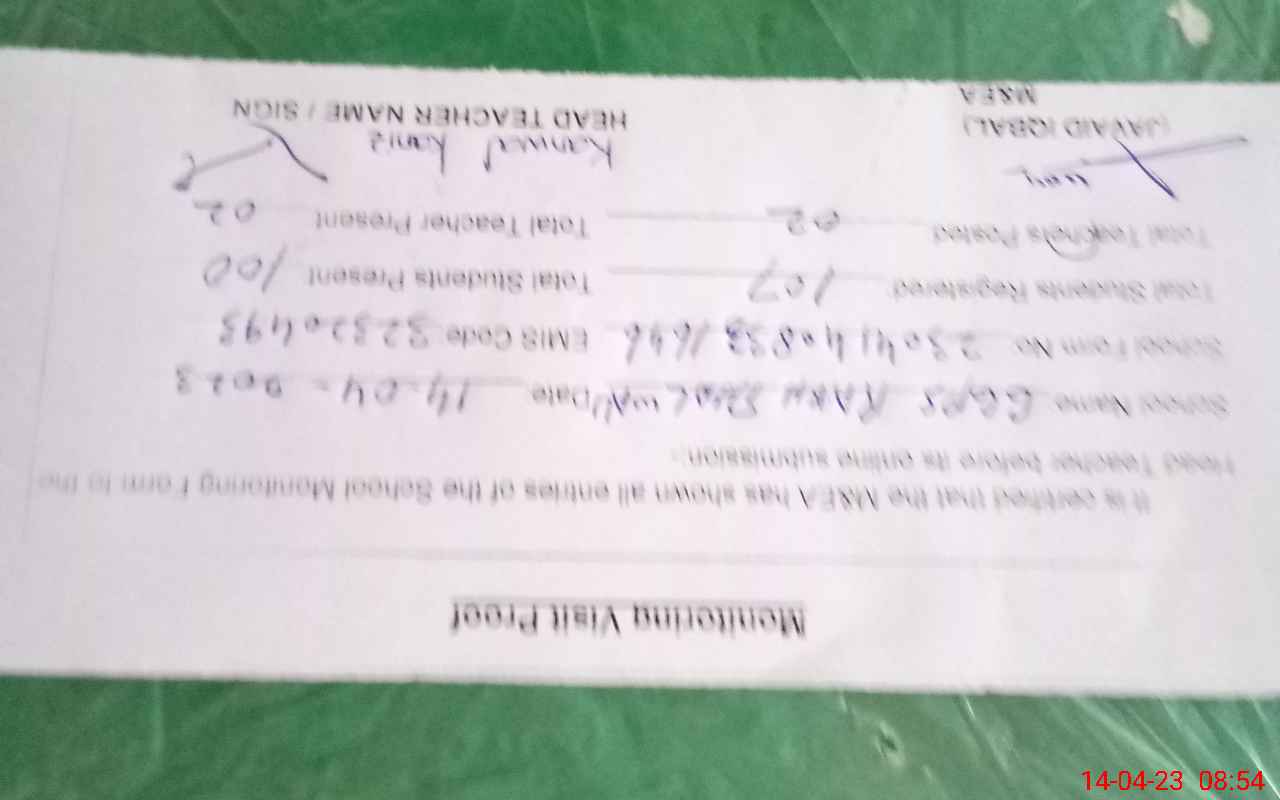 Monitoring Visit Proof
It is certified that the M&EA has shown all entries of the School Monitoring Form to the
Head Teacher before its online submission.
School Name GGPS Date 14-04-2023
School Form No. EMIS Code 32320493
Total Students Registered 107 Total Students Present 100
Total Teachers Posted 02 Total Teacher Present 02
Kanwal Kaniz
(JAVAID IQBAL) HEAD TEACHER NAME / SIGN
M&EA
14-04-23 08:54